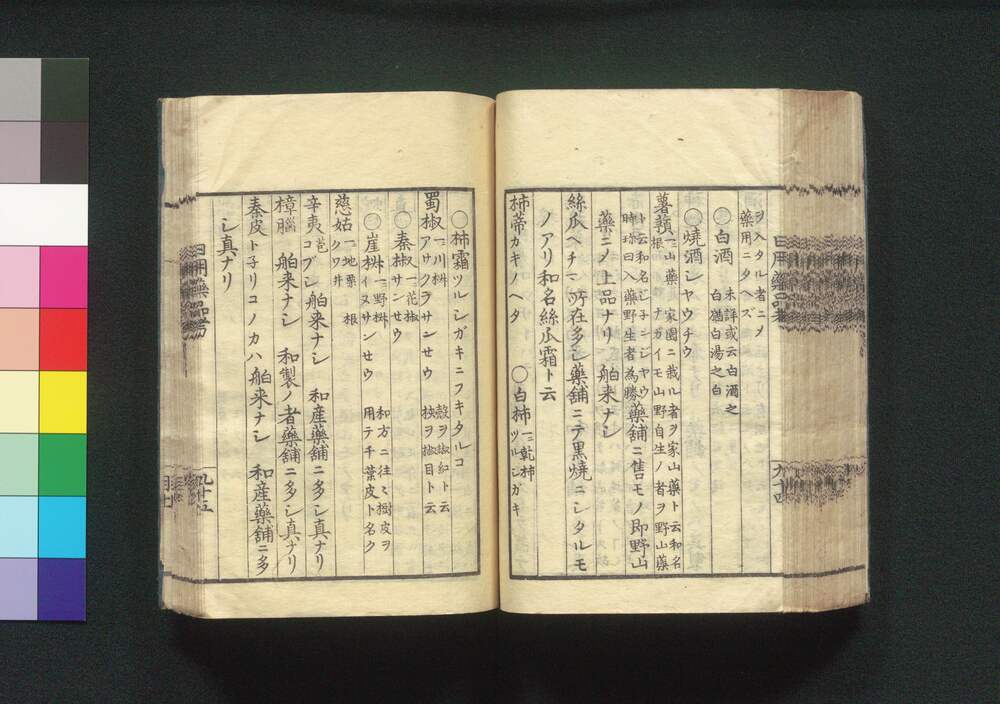 ヲ入タル者ニメ
藥用ニタヘズ
○白酒 未詳或云白酒之
白猶白湯之白
○燒酒シヤウチウ
薯蕷一ニ山藥 家園ニ栽ル者ヲ家山藥ト云和名
根 ナガイモ山野自生ノ者ヲ野山藥
ト云和名ジ子ンジヤウ藥舗ニ售モノ即野山
時珍曰入藥野生者為勝
藥ニノ上品ナリ 舶来ナシ
絲瓜ヘチマ 所在多シ藥舗ニテ黒燒ニシタルモ
ノアリ和名絲瓜霜ト云
柿蒂カキノヘタ ○白柿一ニ乾柿
ツルシガキ
○柿霜ツルシガキニフキタルコ
蜀椒一ニ川椒 殼ヲ椒紅ト云
アサクラサンセウ 椒目ト云
○秦椒一ニ花椒
サンセウ
○崖椒一ニ野椒 和方ニ往〻樹皮ヲ
イヌサンセウ 用テチ葉皮ト名ク
慈姑一ニ地栗 根
クワ井
辛夷苞 コブシ 舶来ナシ 和産藥舗ニ多シ真ナリ
樟腦 舶来ナシ 和製ノ者藥舗ニ多シ真ナリ
秦皮ト子リコノカハ 舶来ナシ 和産藥舗ニ多
シ真ナリ
日用藥品考
九十四
日用藥品考
九十五